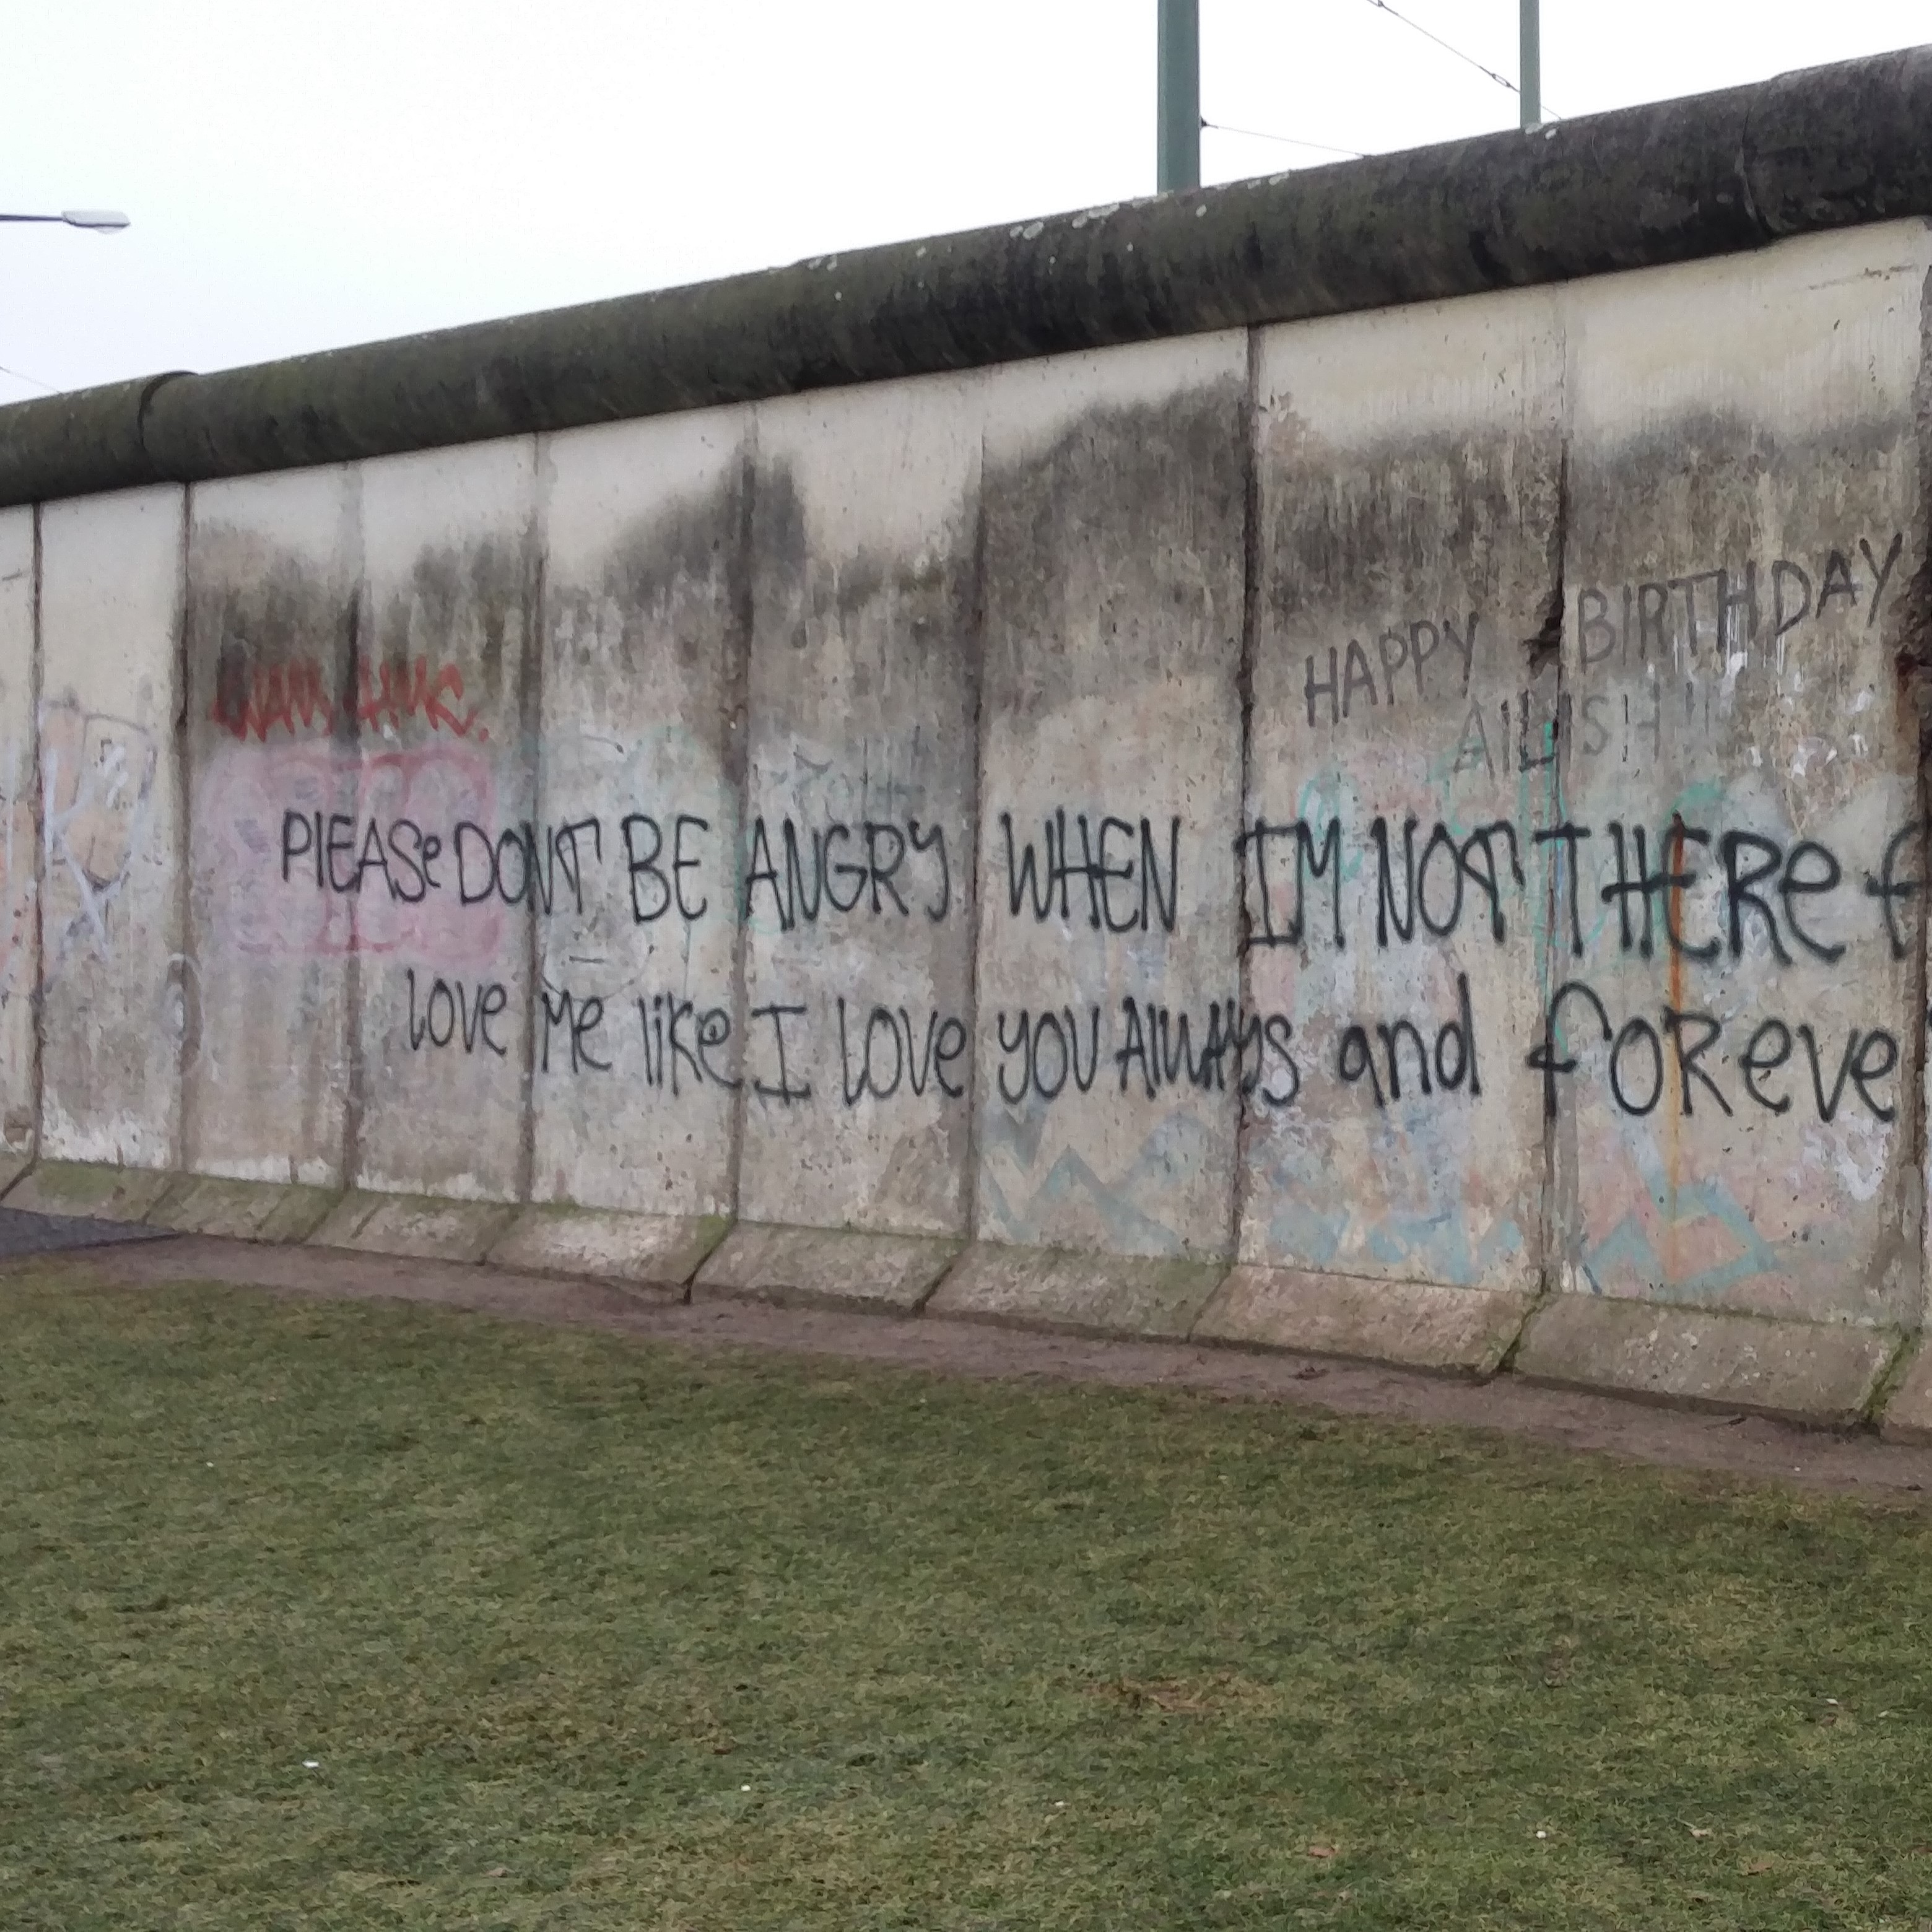 HAPPY BIRTHDAY
AILISH!!
PlEASe DONT BE ANGRY WHEN IM NOT THERe f
lOVe Me like I lOVe YOU AlWAYS and fOReve